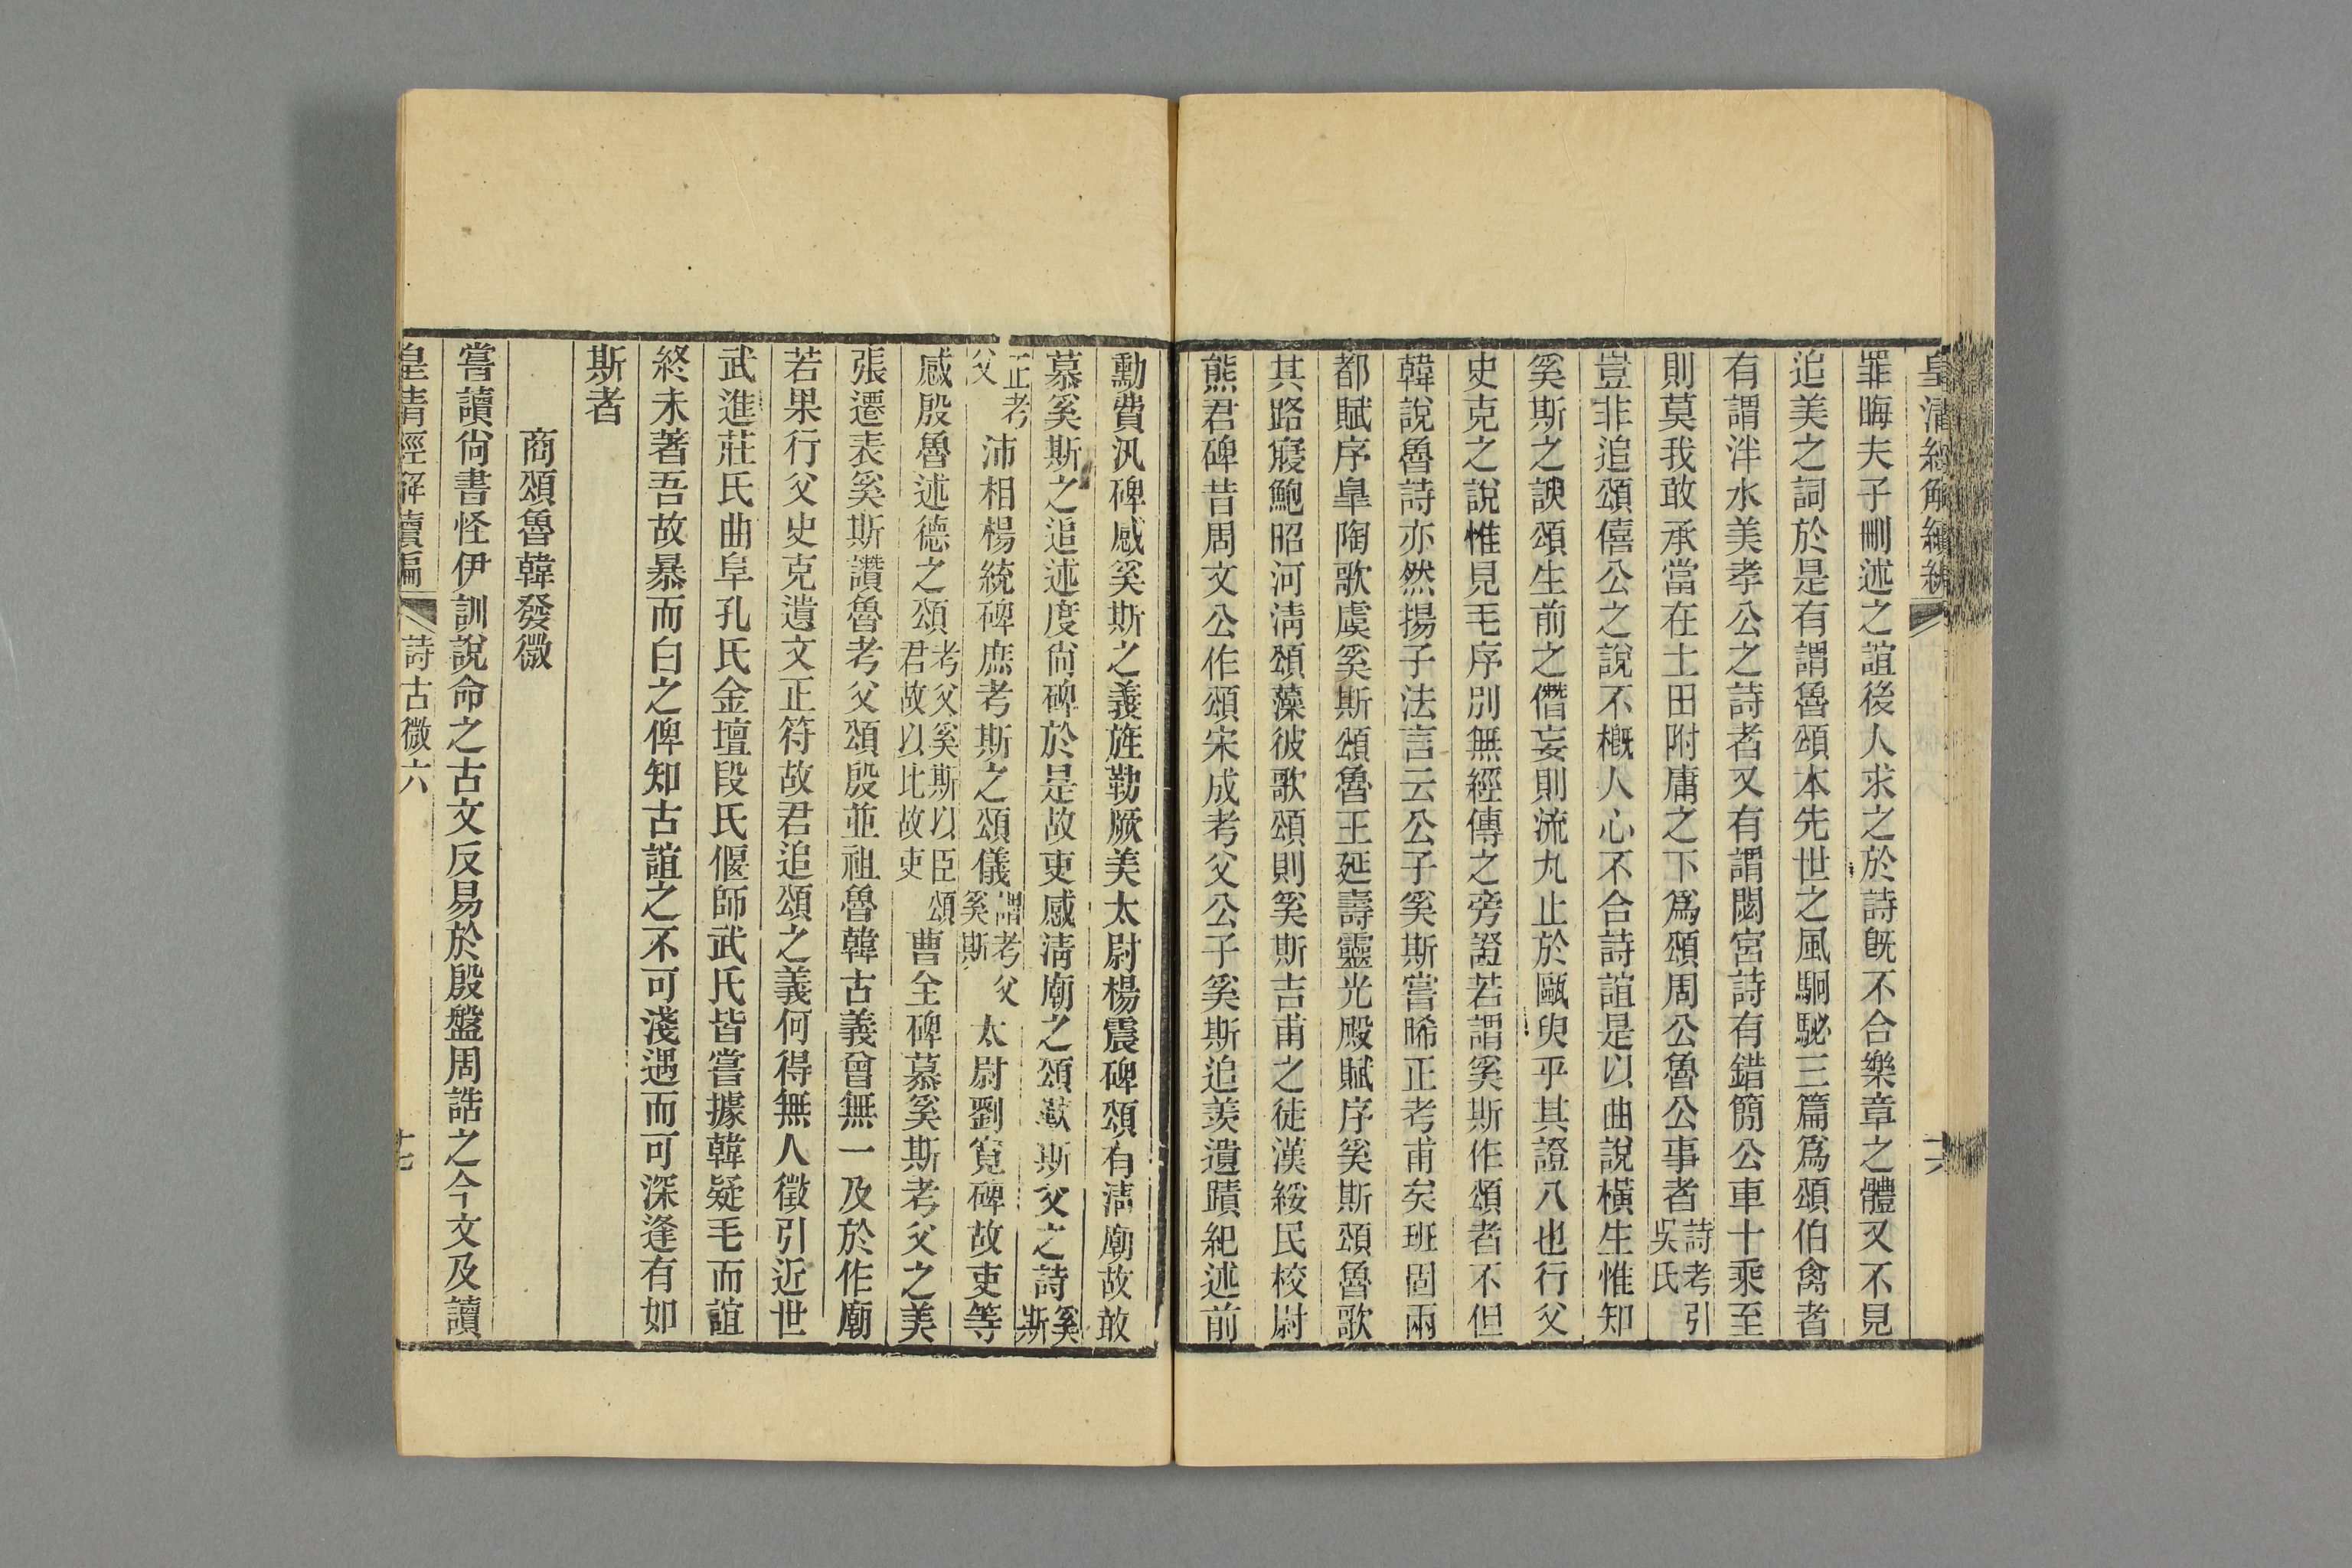 皇清經解續編
罪晦夫子刪述之誼後人求之於詩旣不合樂章之體又不見
追美之詞於是有謂魯頌本先世之風駉駜三篇爲頌伯禽者
有謂泮水美孝公之詩者又有謂閟宮詩有錯簡公車十乘至
則莫我敢承當在土田附庸之下爲頌周公魯公事者詩考引吳氏
豈非追頌僖公之說不槪人心不合詩誼是以曲說橫生惟知
奚斯之諛頌生前之僭妄則流丸止於甌臾乎其證八也行父
史克之說惟見毛序別無經傳之旁證若謂奚斯作頌者不但
韓說魯詩亦然揚子法言云公子奚斯嘗睎正考甫矣班固兩
都賦序臯陶歌虞奚斯頌魯王延壽靈光殿賦序奚斯頌魯歌
其路寢鮑昭河淸頌藻彼歌頌則奚斯吉甫之徒漢綏民校尉
熊君碑昔周文公作頌宋成考父公子奚斯追羨遺蹟紀述前
勳費汎碑感奚斯之義旌勒厥美太尉楊震碑頌有淸廟故敢
慕奚斯之追述度尙碑於是故吏感淸廟之頌歎斯父之詩奚斯
正考父沛相楊統碑庶考斯之頌儀謂考父奚斯太尉劉寬碑故吏等
感殷魯述德之頌考父奚斯以臣頌君故以比故吏曹全碑慕奚斯考父之美
張遷表奚斯讚魯考父頌殷並祖魯韓古義曾無一及於作廟
若果行父史克遺文正符故君追頌之義何得無人徵引近世
武進莊氏曲阜孔氏金壇段氏偃師武氏皆嘗據韓疑毛而誼
終未著吾故暴而白之俾知古誼之不可淺遇而可深逢有如
斯者
商頌魯韓發微
嘗讀尙書怪伊訓說命之古文反易於殷盤周誥之今文及讀
皇淸經解續編 詩古微六 十七